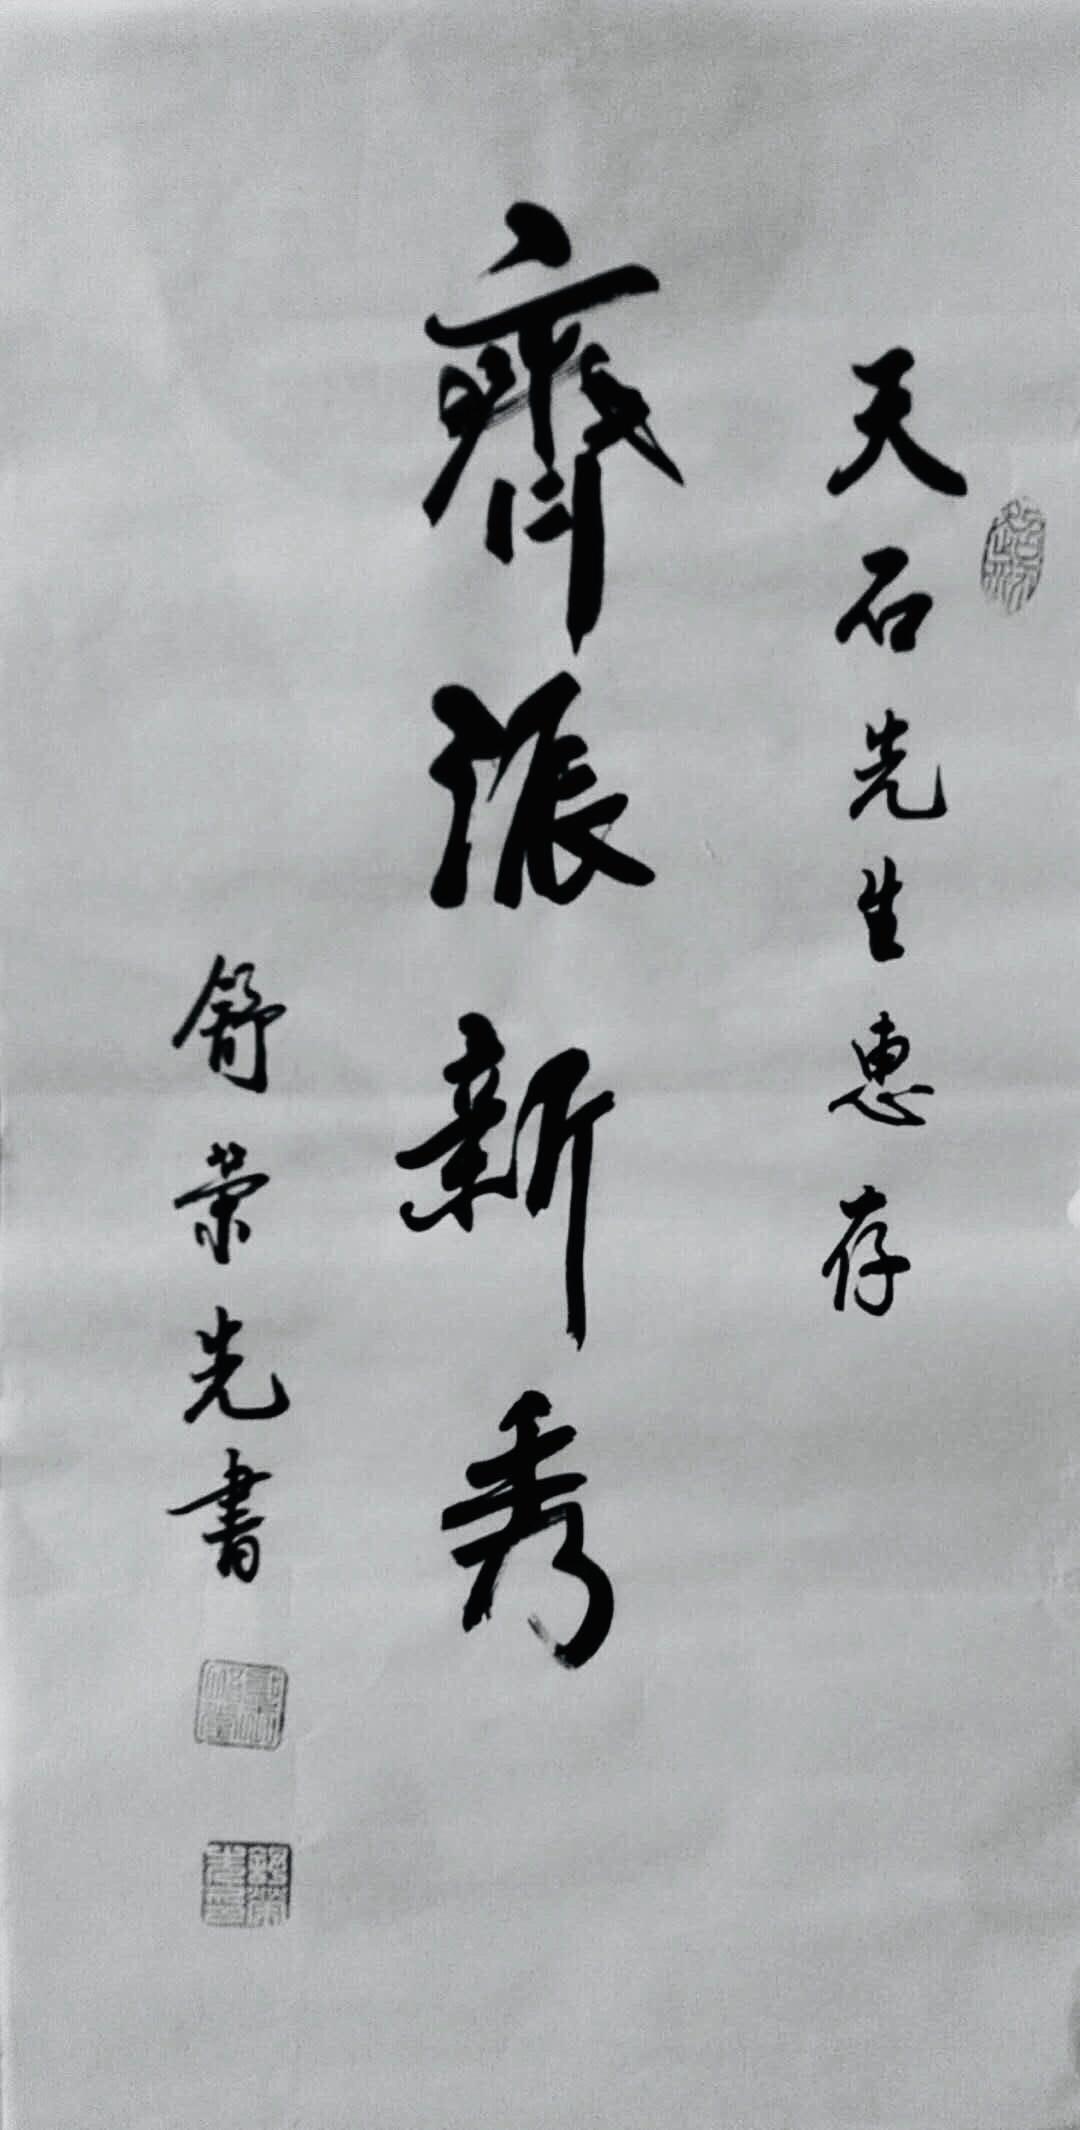 天石先生惠存
齊派新秀
舒榮先書